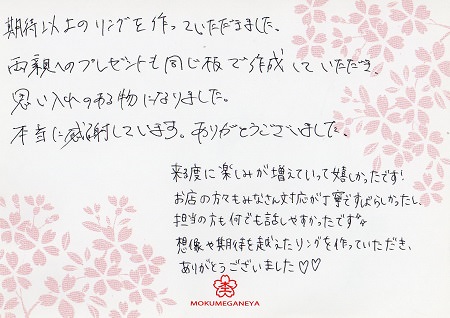 期待以上のリングを作っていただきました。
両親へのプレゼントも同じ板で作成していただき、
思い入れのある物になりました。
本当に感謝しています。ありがとうございました。
来る度に楽しみが増えていって嬉しかったです!
お店の方々もみなさん対応が丁寧ですばらしかったし、
担当の方も何でも話しやすかったです☆
想像や期待を越えたリングを作っていただき、
ありがとうございました♡♡
MOKUMEGANEYA